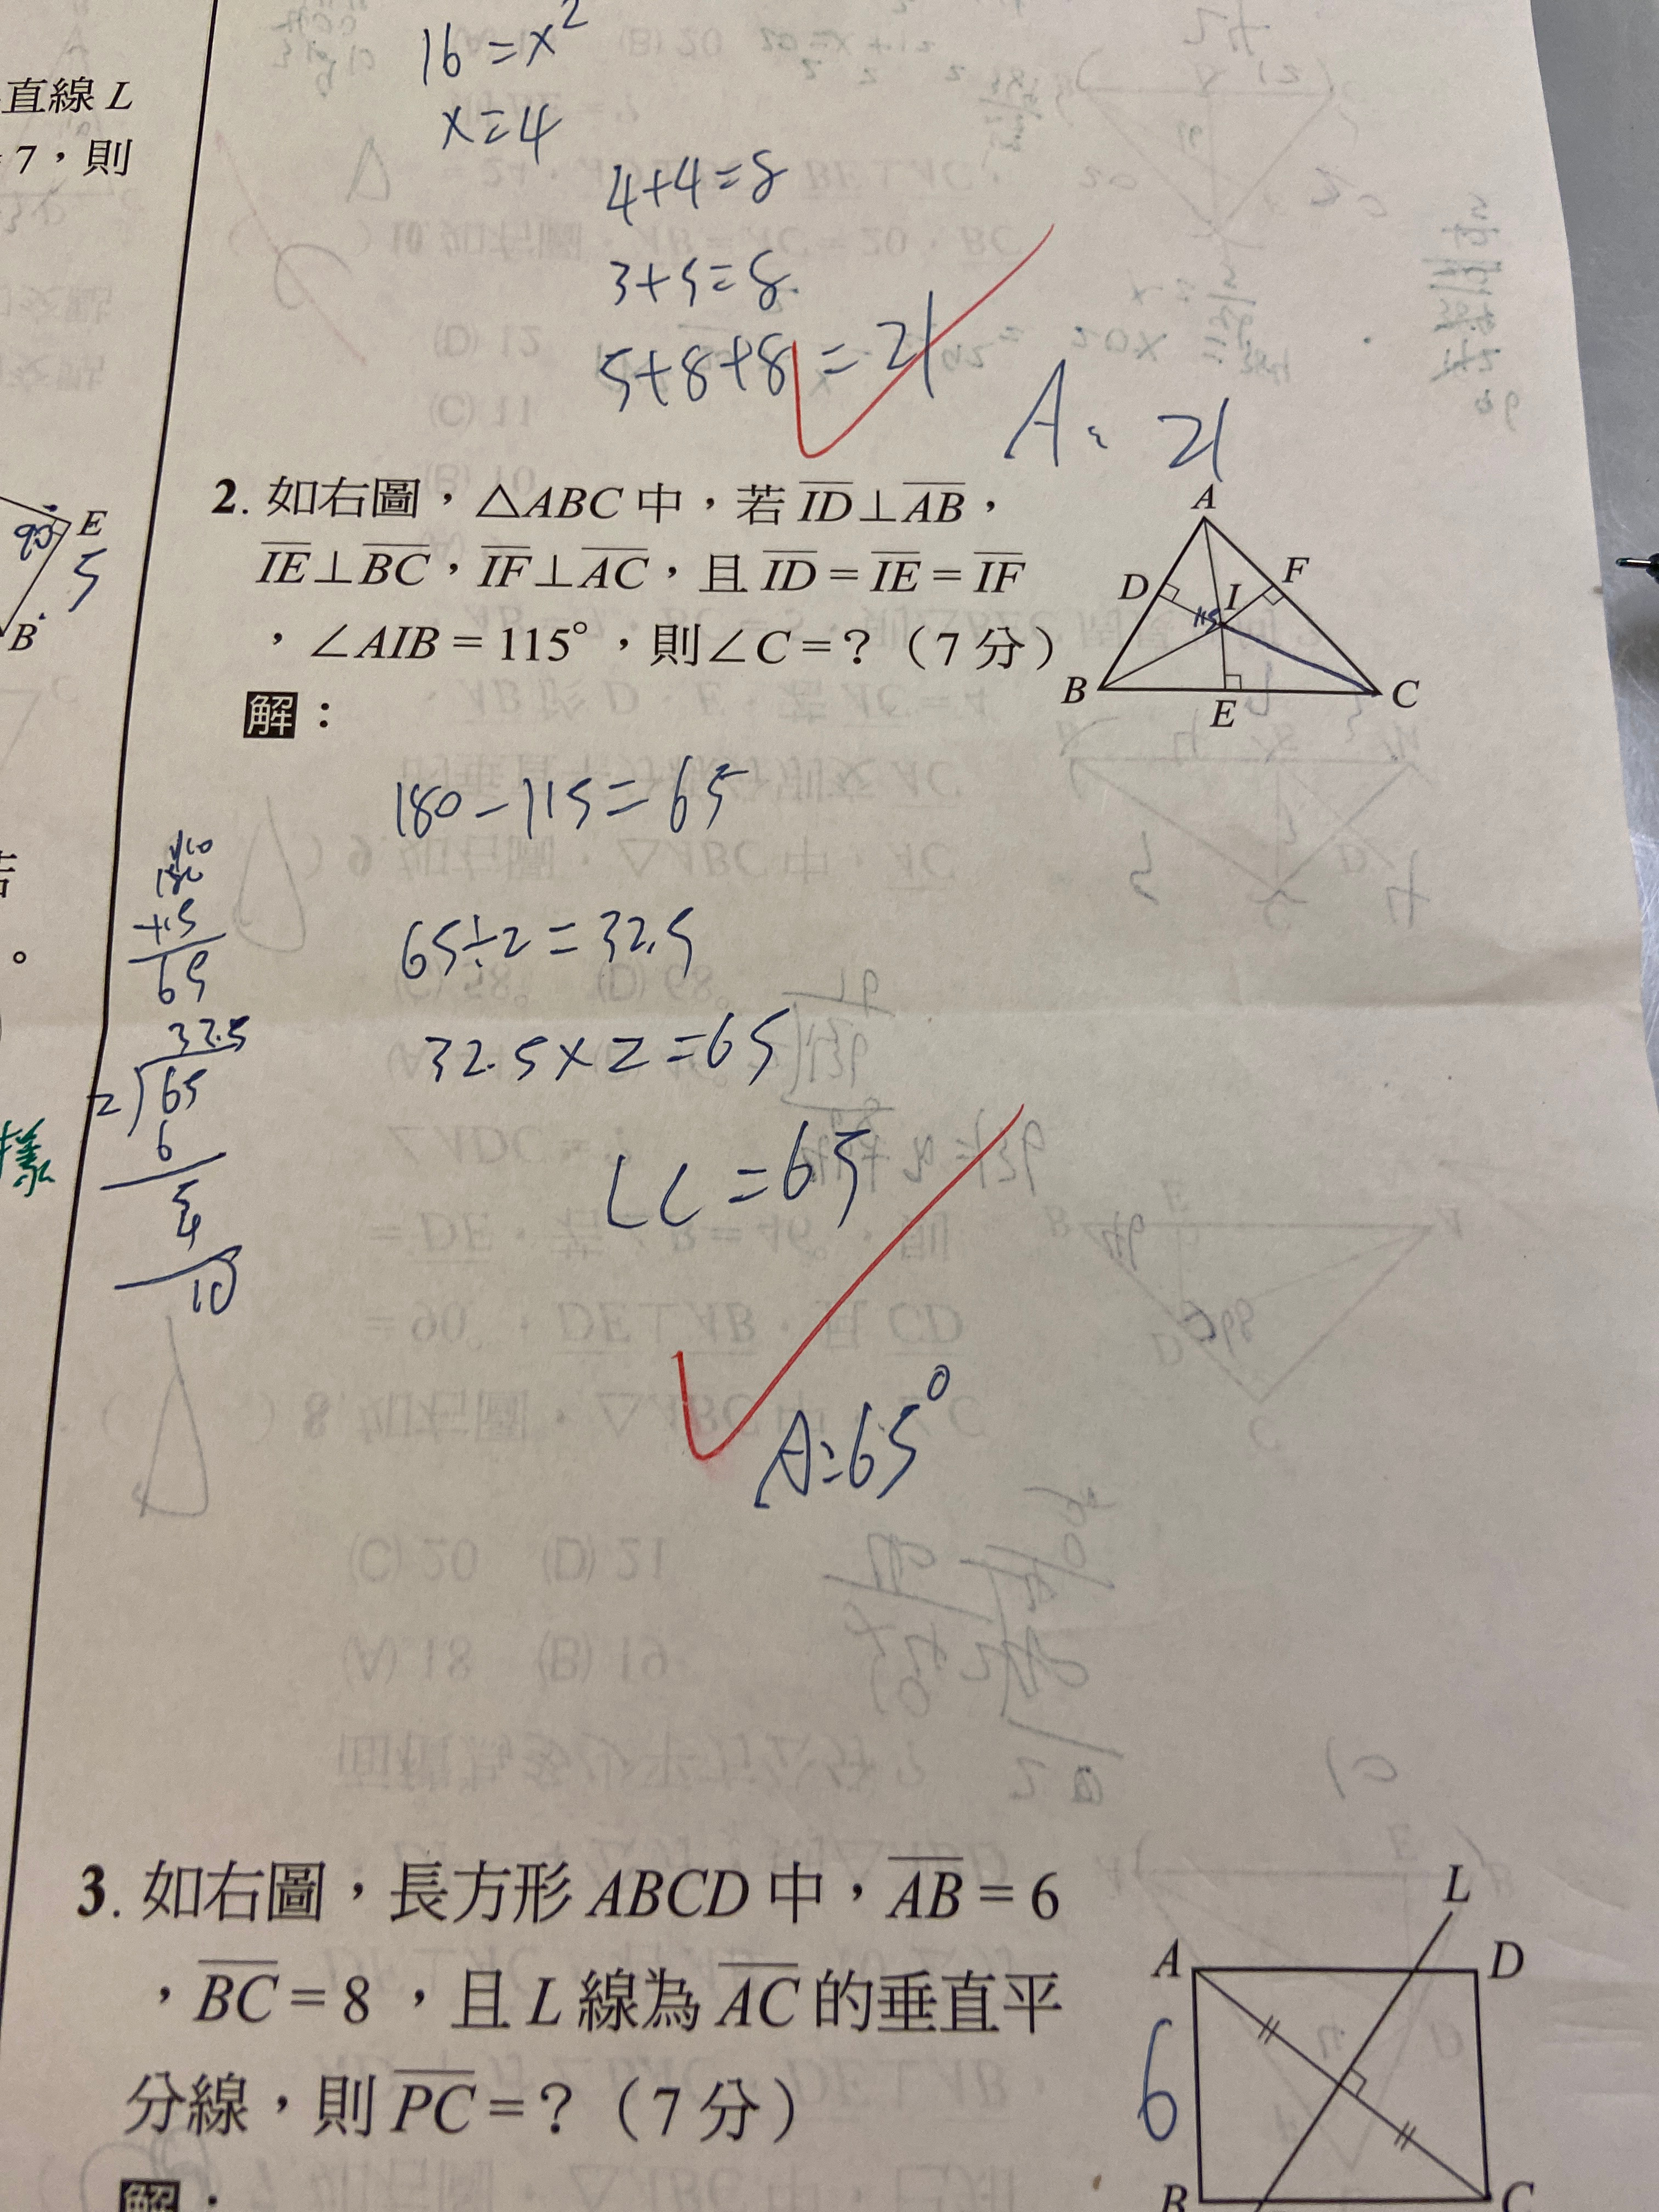 直線 L
7，則
16 = x²
x = 4
4+4=8
3+5=8
5+8+8=21
A: 21
2. 如右圖，△ABC 中，若 ID⊥AB，
IE⊥BC，IF⊥AC，且 ID = IE = IF
，∠AIB = 115°，則∠C =？（7 分）
A
D
F
I
115
B
E
C
90
E
5
B
解：
180-115=65
65÷2=32.5
32.5×2=65
∠C=65
A:65°
65
32.5
2
65
6
5
4
10
樣
3. 如右圖，長方形 ABCD 中，AB = 6
，BC = 8 ，且 L 線為 AC 的垂直平
分線，則 PC =？（7 分）
解：
L
A
D
6
B
C